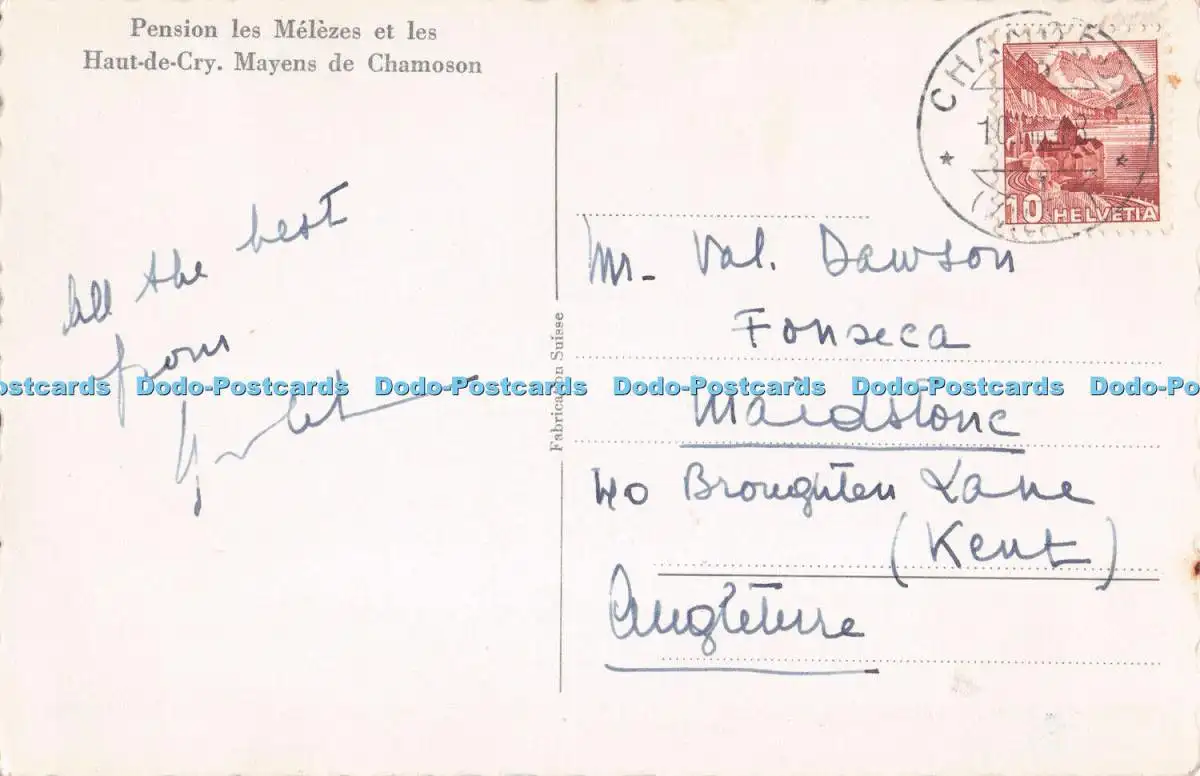 Pension les Mélèzes et les
Haut-de-Cry. Mayens de Chamoson
All the best
from
Fabrication Suisse
CHAMOSON
10 HELVETIA
Mr. Val. Dawson
Fonseca
Maidstone
40 Broughten Lane
(Kent)
Angleterre
Dodo-Postcards Dodo-Postcards Dodo-Postcards Dodo-Postcards Dodo-Postcards Dodo-Postcards